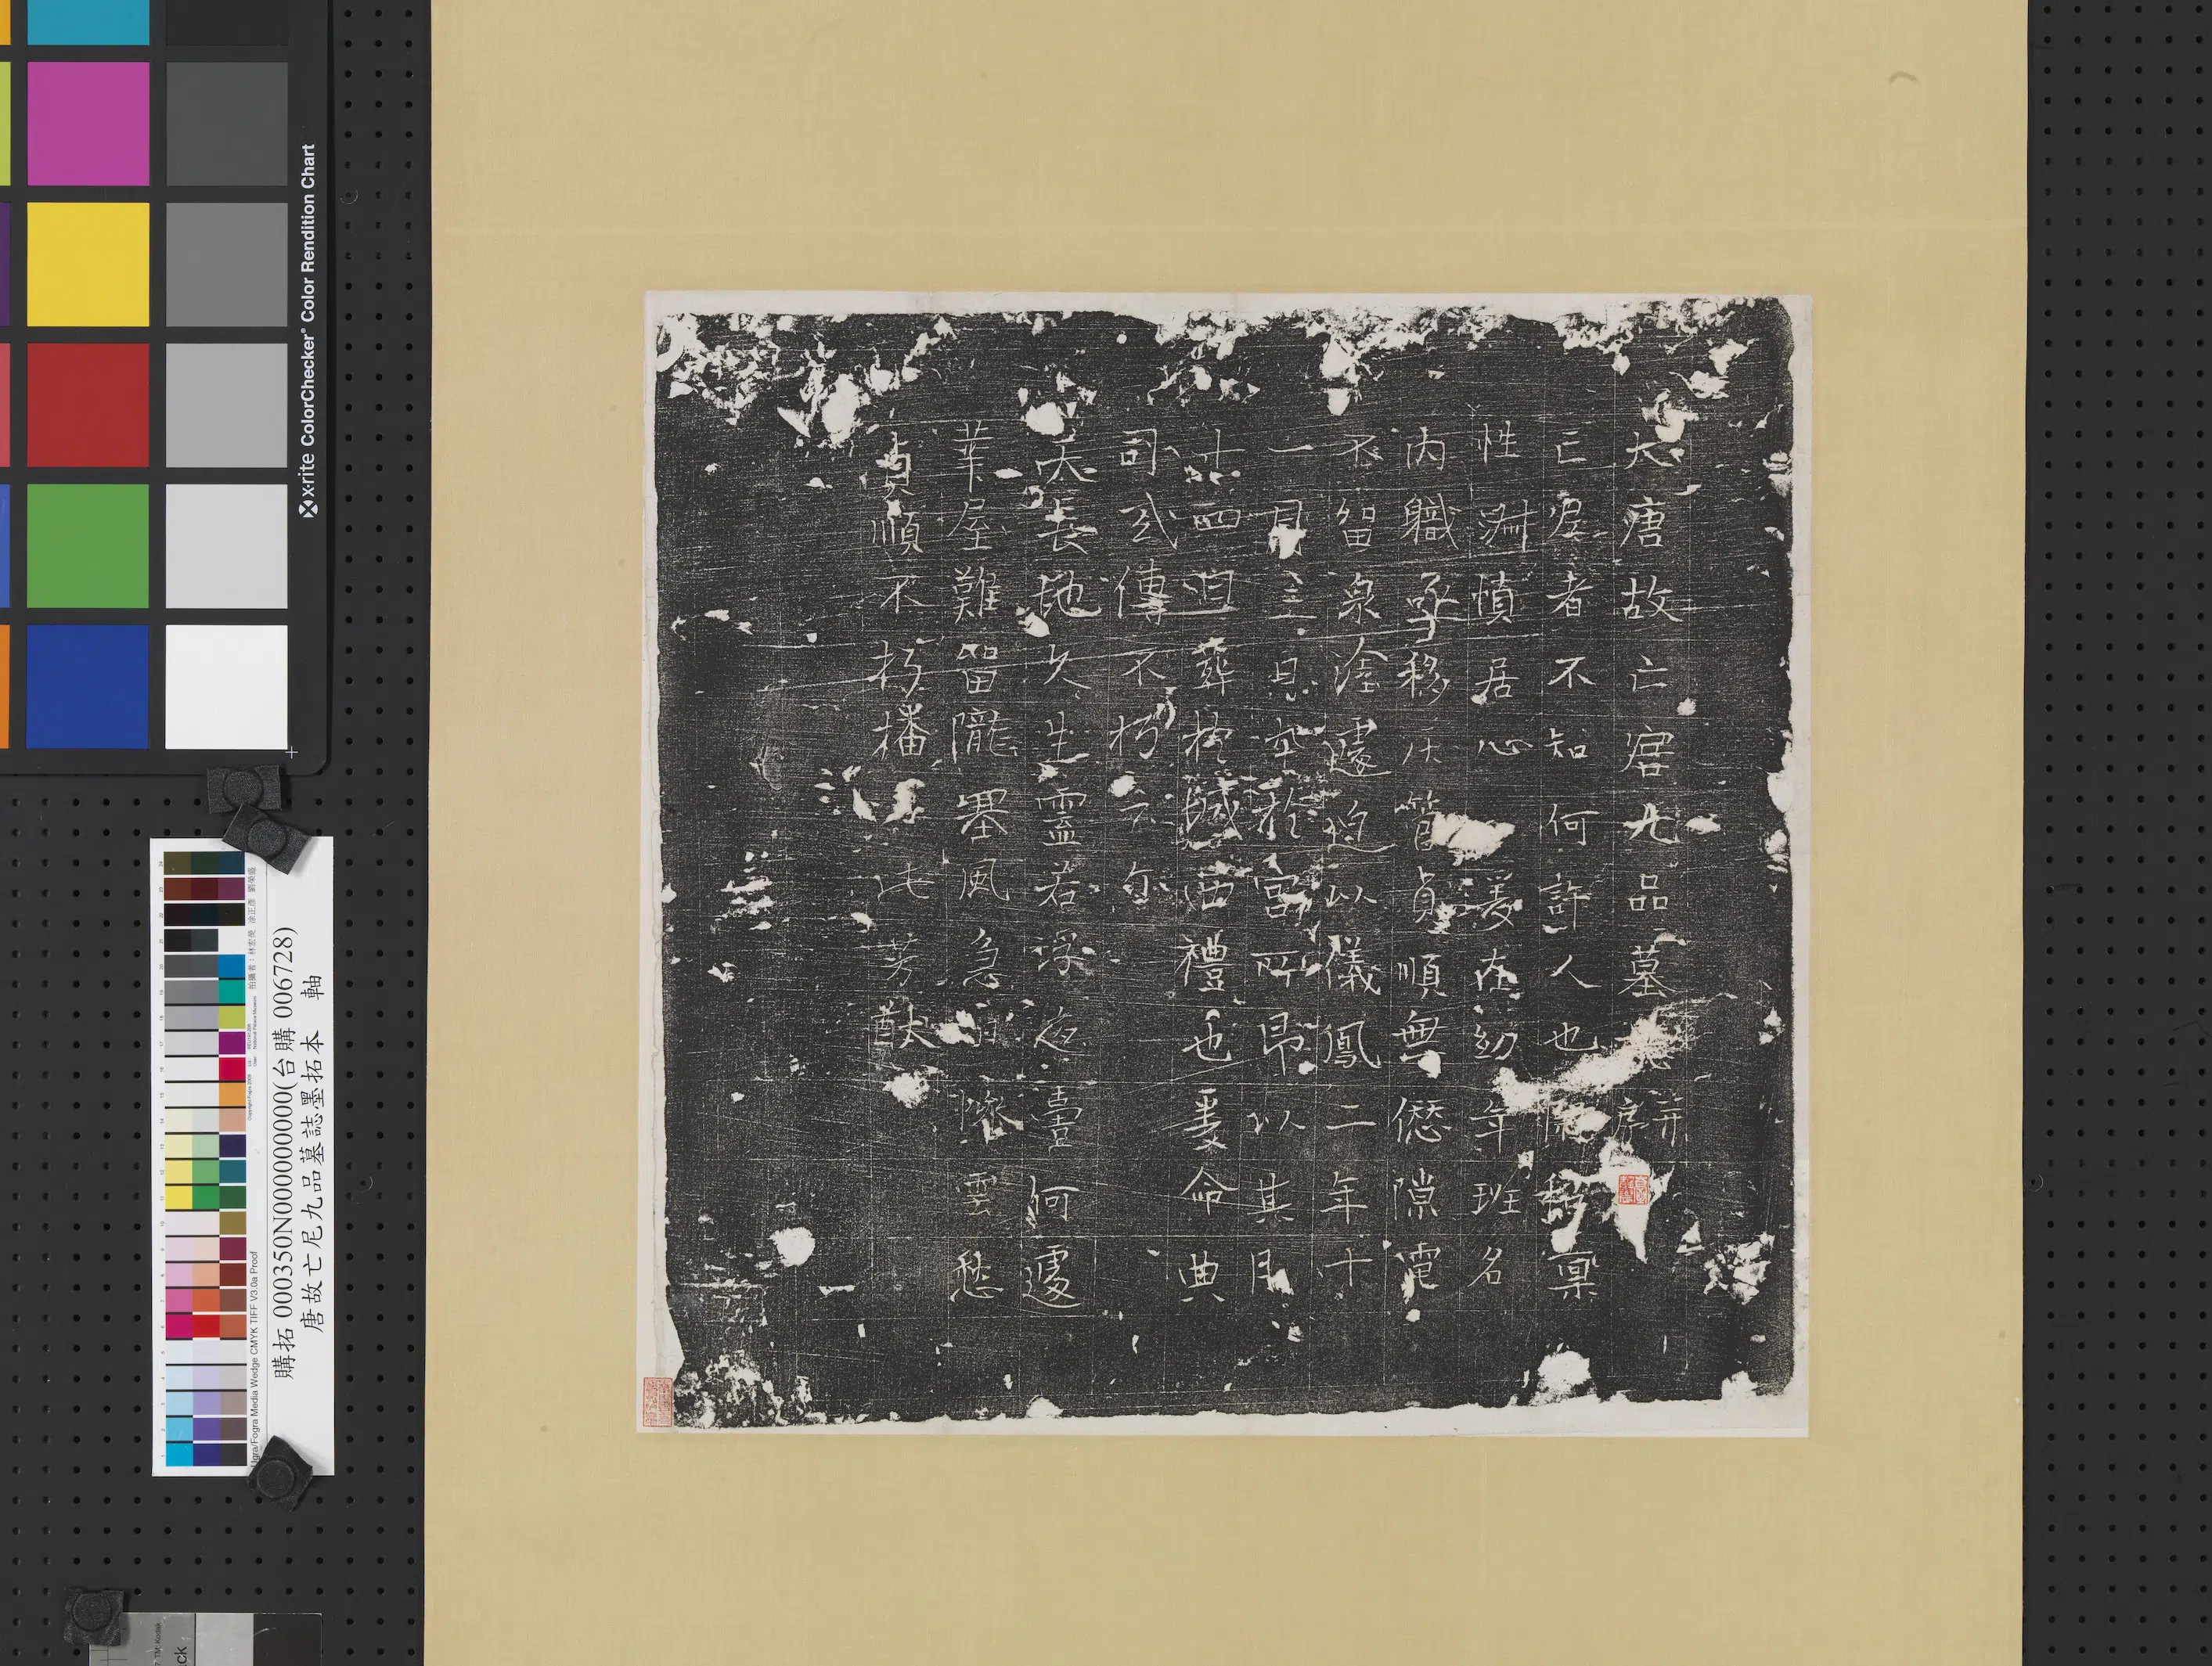 大唐故亡宫九品墓誌并序
亡宫者不知何許人也閑昭稟
性淑慎居心爰在幼年班名
内職亟移灰管貞順無愆隙電
不留泉塗遽迫以儀鳳二年十
一月三日卒於宫所即以其月
廿四日葬於城西禮也爰命典
司式傳不朽云尔
天長地久生靈若浮夜臺何遽
華屋難留隴墨風急松深雲愁
貞順不朽播此芳猷
購拓 000350N000000000(台購 006728)
唐故亡尼九品墓誌墨拓本 軸
x-rite ColorChecker® Color Rendition Chart
Ugra/Fogra Media Wedge CMYK TIFF V3.0a Proof